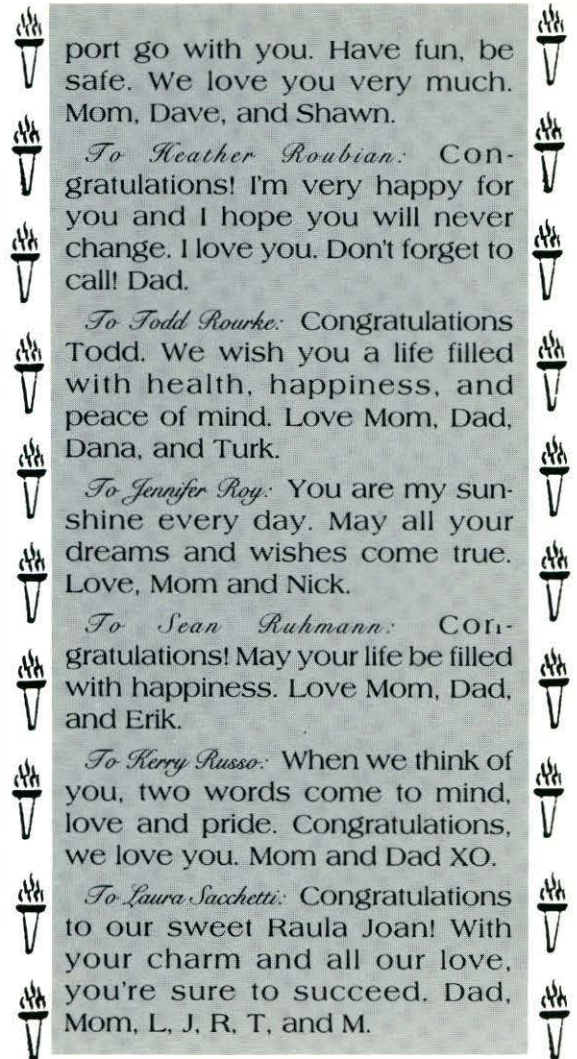 port go with you. Have fun, be
safe. We love you very much.
Mom, Dave, and Shawn.
To Heather Roubian: Con-
gratulations! I'm very happy for
you and I hope you will never
change. I love you. Don't forget to
call! Dad.
To Todd Rourke: Congratulations
Todd. We wish you a life filled
with health, happiness, and
peace of mind. Love Mom, Dad,
Dana, and Turk.
To Jennifer Roy: You are my sun-
shine every day. May all your
dreams and wishes come true.
Love, Mom and Nick.
To Sean Ruhmann: Con-
gratulations! May your life be filled
with happiness. Love Mom, Dad,
and Erik.
To Kerry Russo: When we think of
you, two words come to mind,
love and pride. Congratulations,
we love you. Mom and Dad XO.
To Laura Sacchetti: Congratulations
to our sweet Raula Joan! With
your charm and all our love,
you're sure to succeed. Dad,
Mom, L, J, R, T, and M.